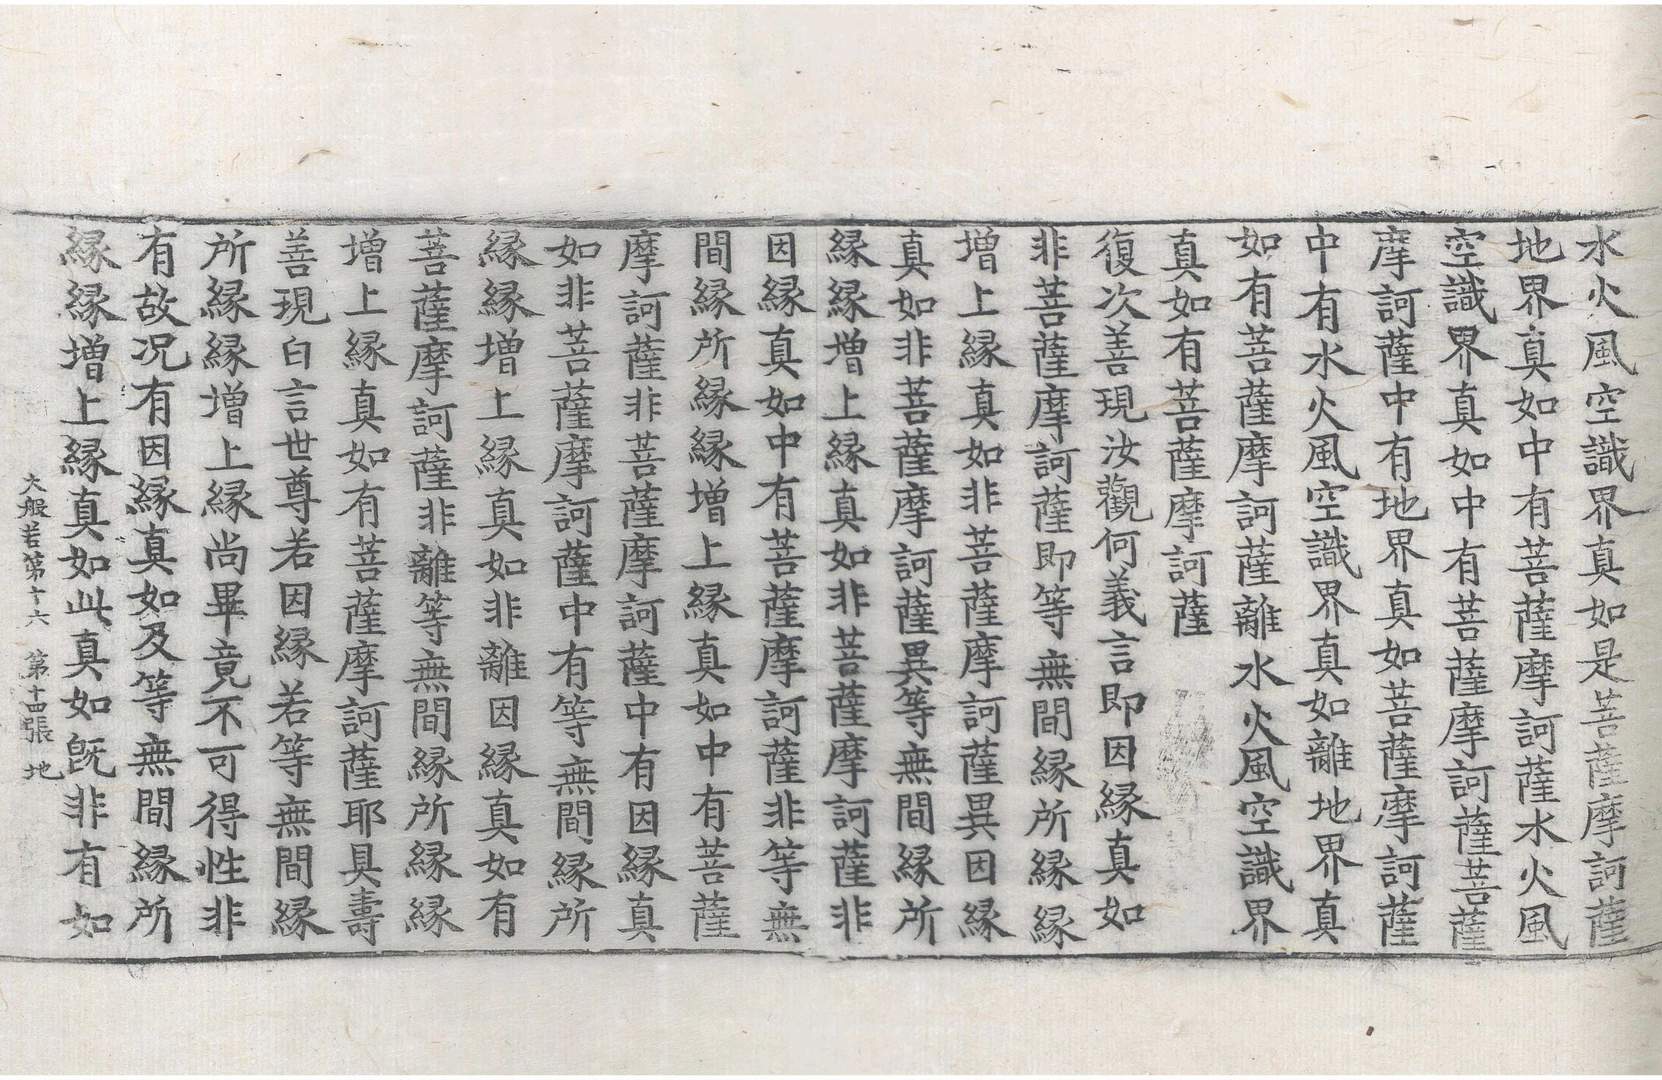 水火風空識界真如是菩薩摩訶薩
地界真如中有菩薩摩訶薩水火風
空識界真如中有菩薩摩訶薩菩薩
摩訶薩中有地界真如菩薩摩訶薩
中有水火風空識界真如離地界真
如有菩薩摩訶薩離水火風空識界
真如有菩薩摩訶薩
復次善現汝觀何義言即因縁真如
非菩薩摩訶薩即等無間縁所縁縁
增上縁真如非菩薩摩訶薩異因縁
真如非菩薩摩訶薩異等無間縁所
縁縁增上縁真如非菩薩摩訶薩非
因縁真如中有菩薩摩訶薩非等無
間縁所縁縁增上縁真如中有菩薩
摩訶薩非菩薩摩訶薩中有因縁真
如非菩薩摩訶薩中有等無間縁所
縁縁增上縁真如非離因縁真如有
菩薩摩訶薩非離等無間縁所縁縁
增上縁真如有菩薩摩訶薩耶具壽
善現白言世尊若因縁若等無間縁
所縁縁增上縁尚畢竟不可得性非
有故况有因縁真如及等無間縁所
縁縁增上縁真如此真如旣非有如
大般若第十六 第十四張 地